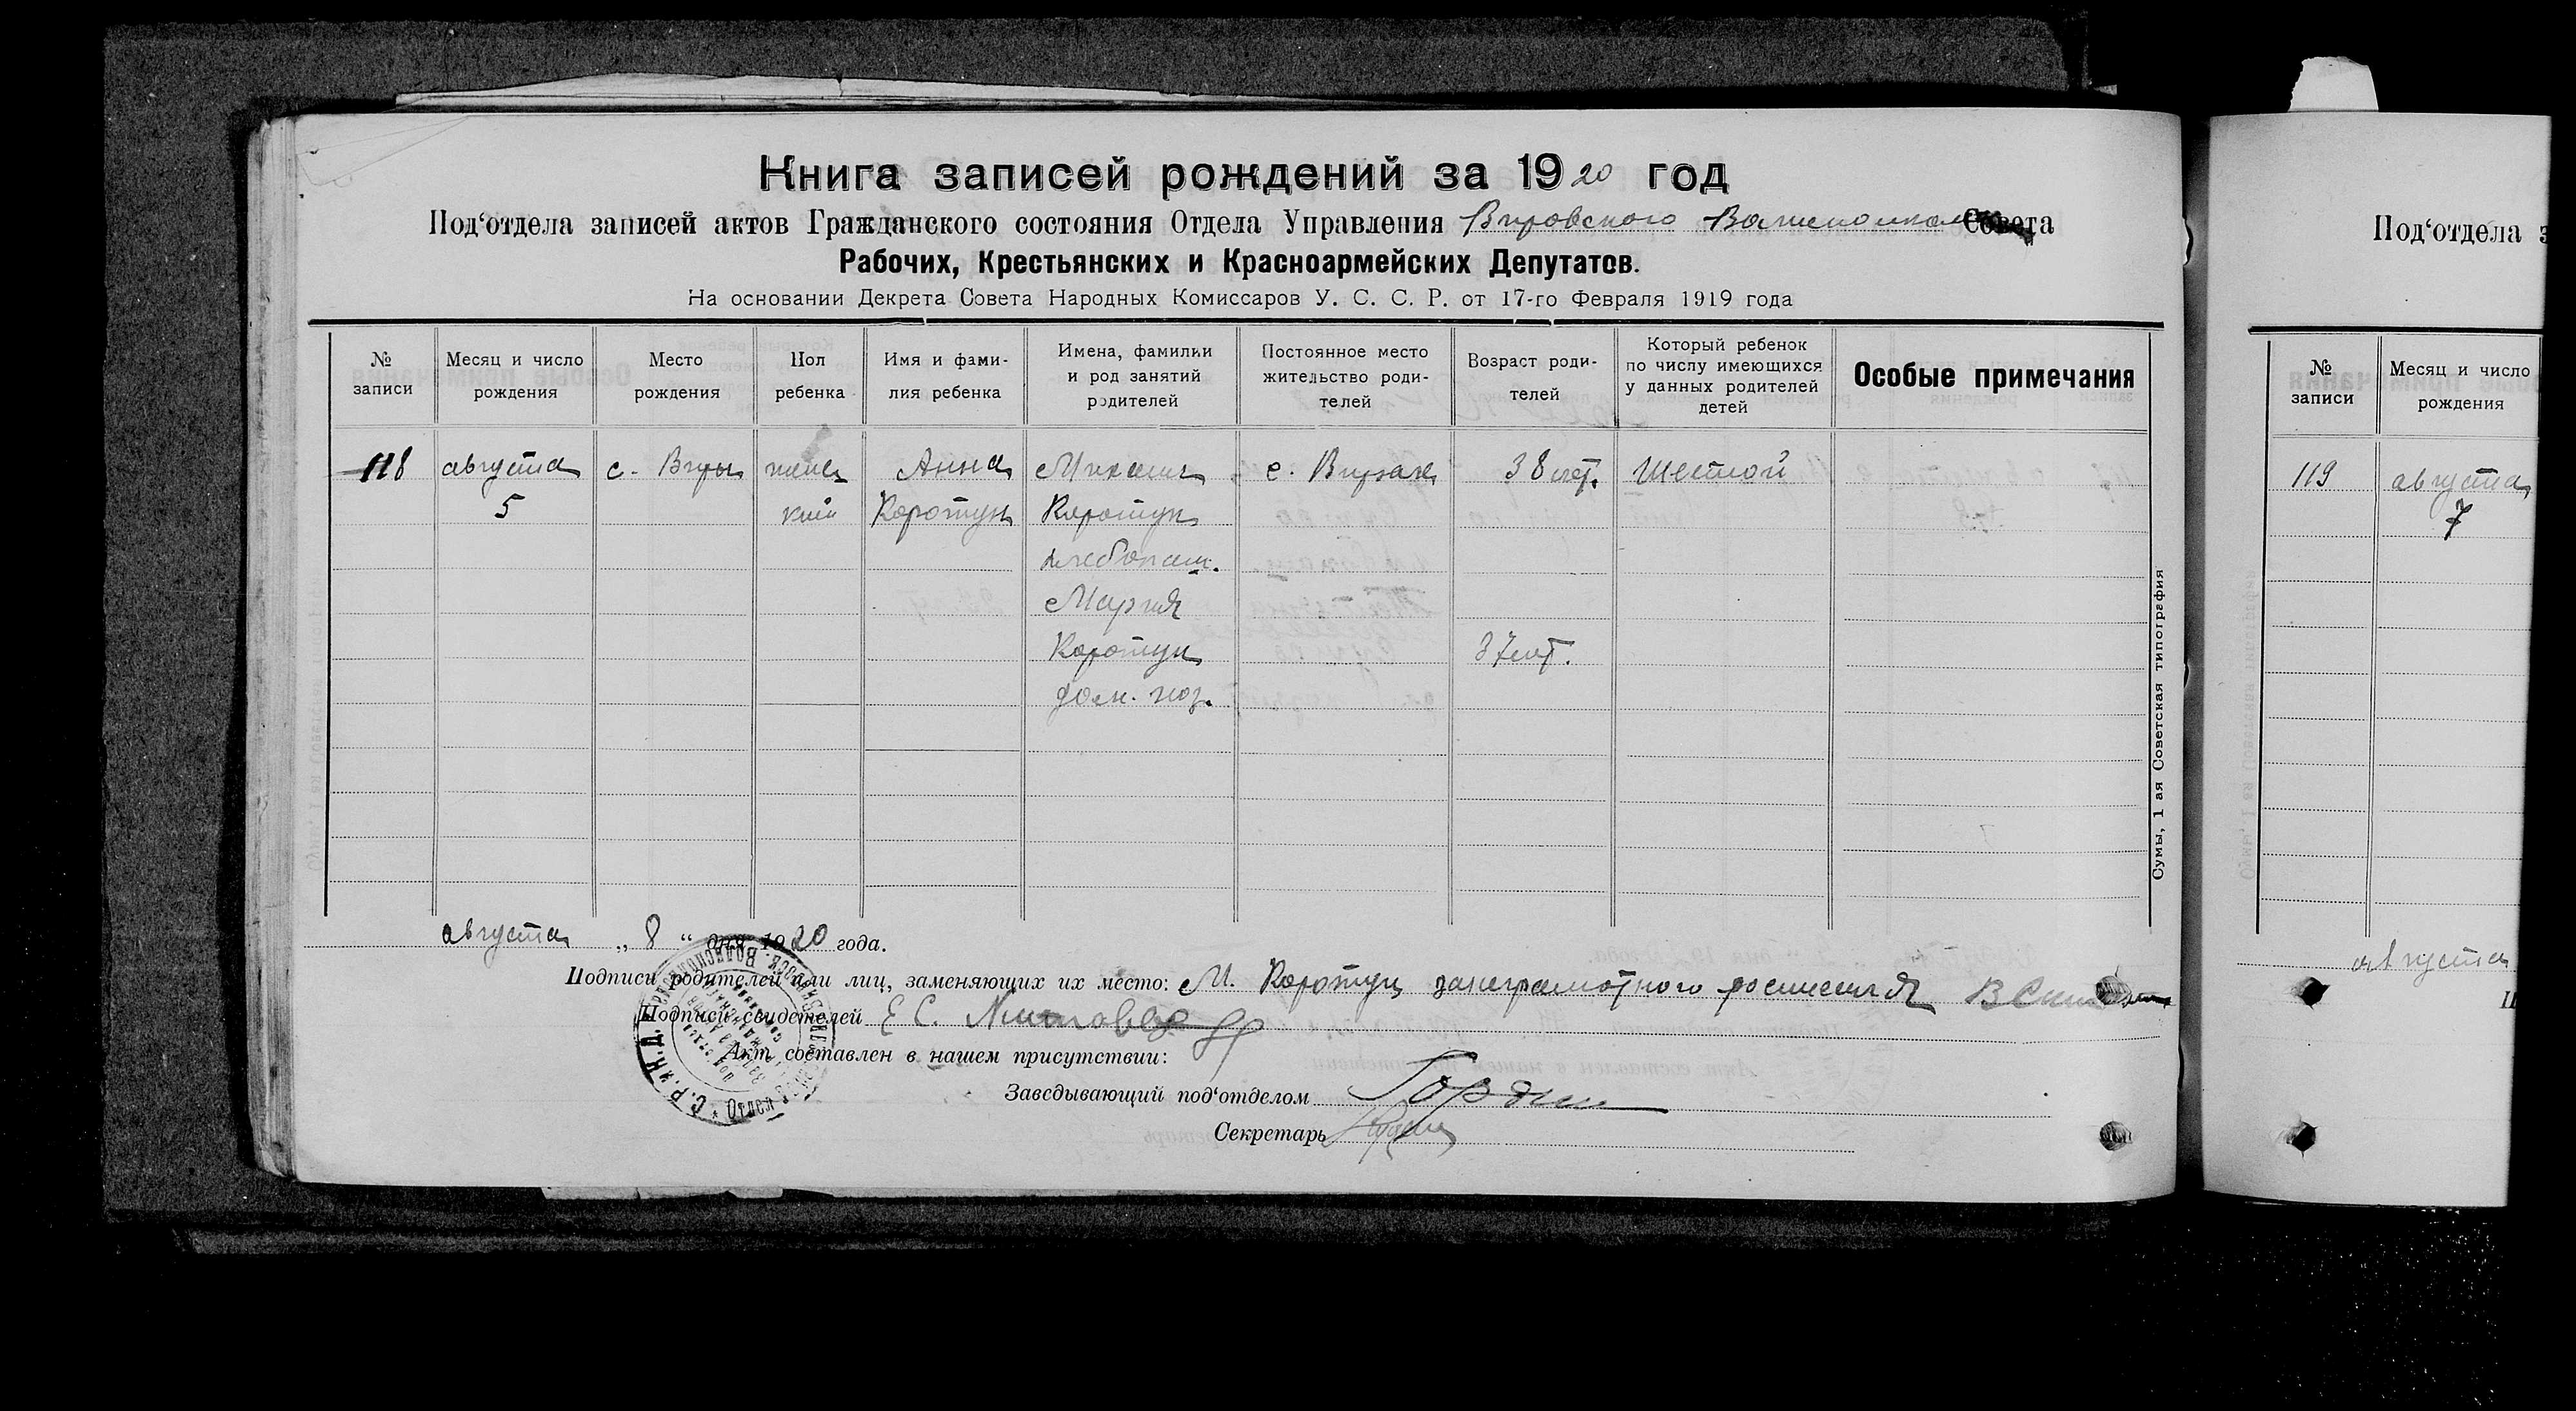 Книга записей рождений за 1920 год
Под‘отдела записей актов Гражданского состояния Отдела Управления Вировского Волисполкома Совета
Рабочих, Крестьянских и Красноармейских Депутатов.
На основании Декрета Совета Народных Комиссаров У. С. С. Р. от 17-го Февраля 1919 года
№ записи
Месяц и число рождения
Место рождения
Пол ребенка
Имя и фами-
лия ребенка
Имена, фамилии
и род занятий
родителей
Постоянное место
жительство роди-
телей
Возраст роди-
телей
Который ребенок
по числу имеющихся
у данных родителей
детей
Особые примечания
118 августа с. Виры женс Анна Михаил с. Вирах 38 лет. Шестой
5 кий Коротун Коротун
хлебопаш.
Мария
Коротун 37 лет.
дом. хоз.
Сумы, 1 ая Советская типография
августа „ 8 “ дня 1920 года.
Подписи родителей или лиц, заменяющих их место: М. Коротун занеграмотного росписался
Подписи свидетелей Е С.
Акт составлен в нашем присутствии:
Заведывающий под‘отделом
Секретарь
Под‘отдела з
№ записи
Месяц и число рождения
119 августа
7
августа
П